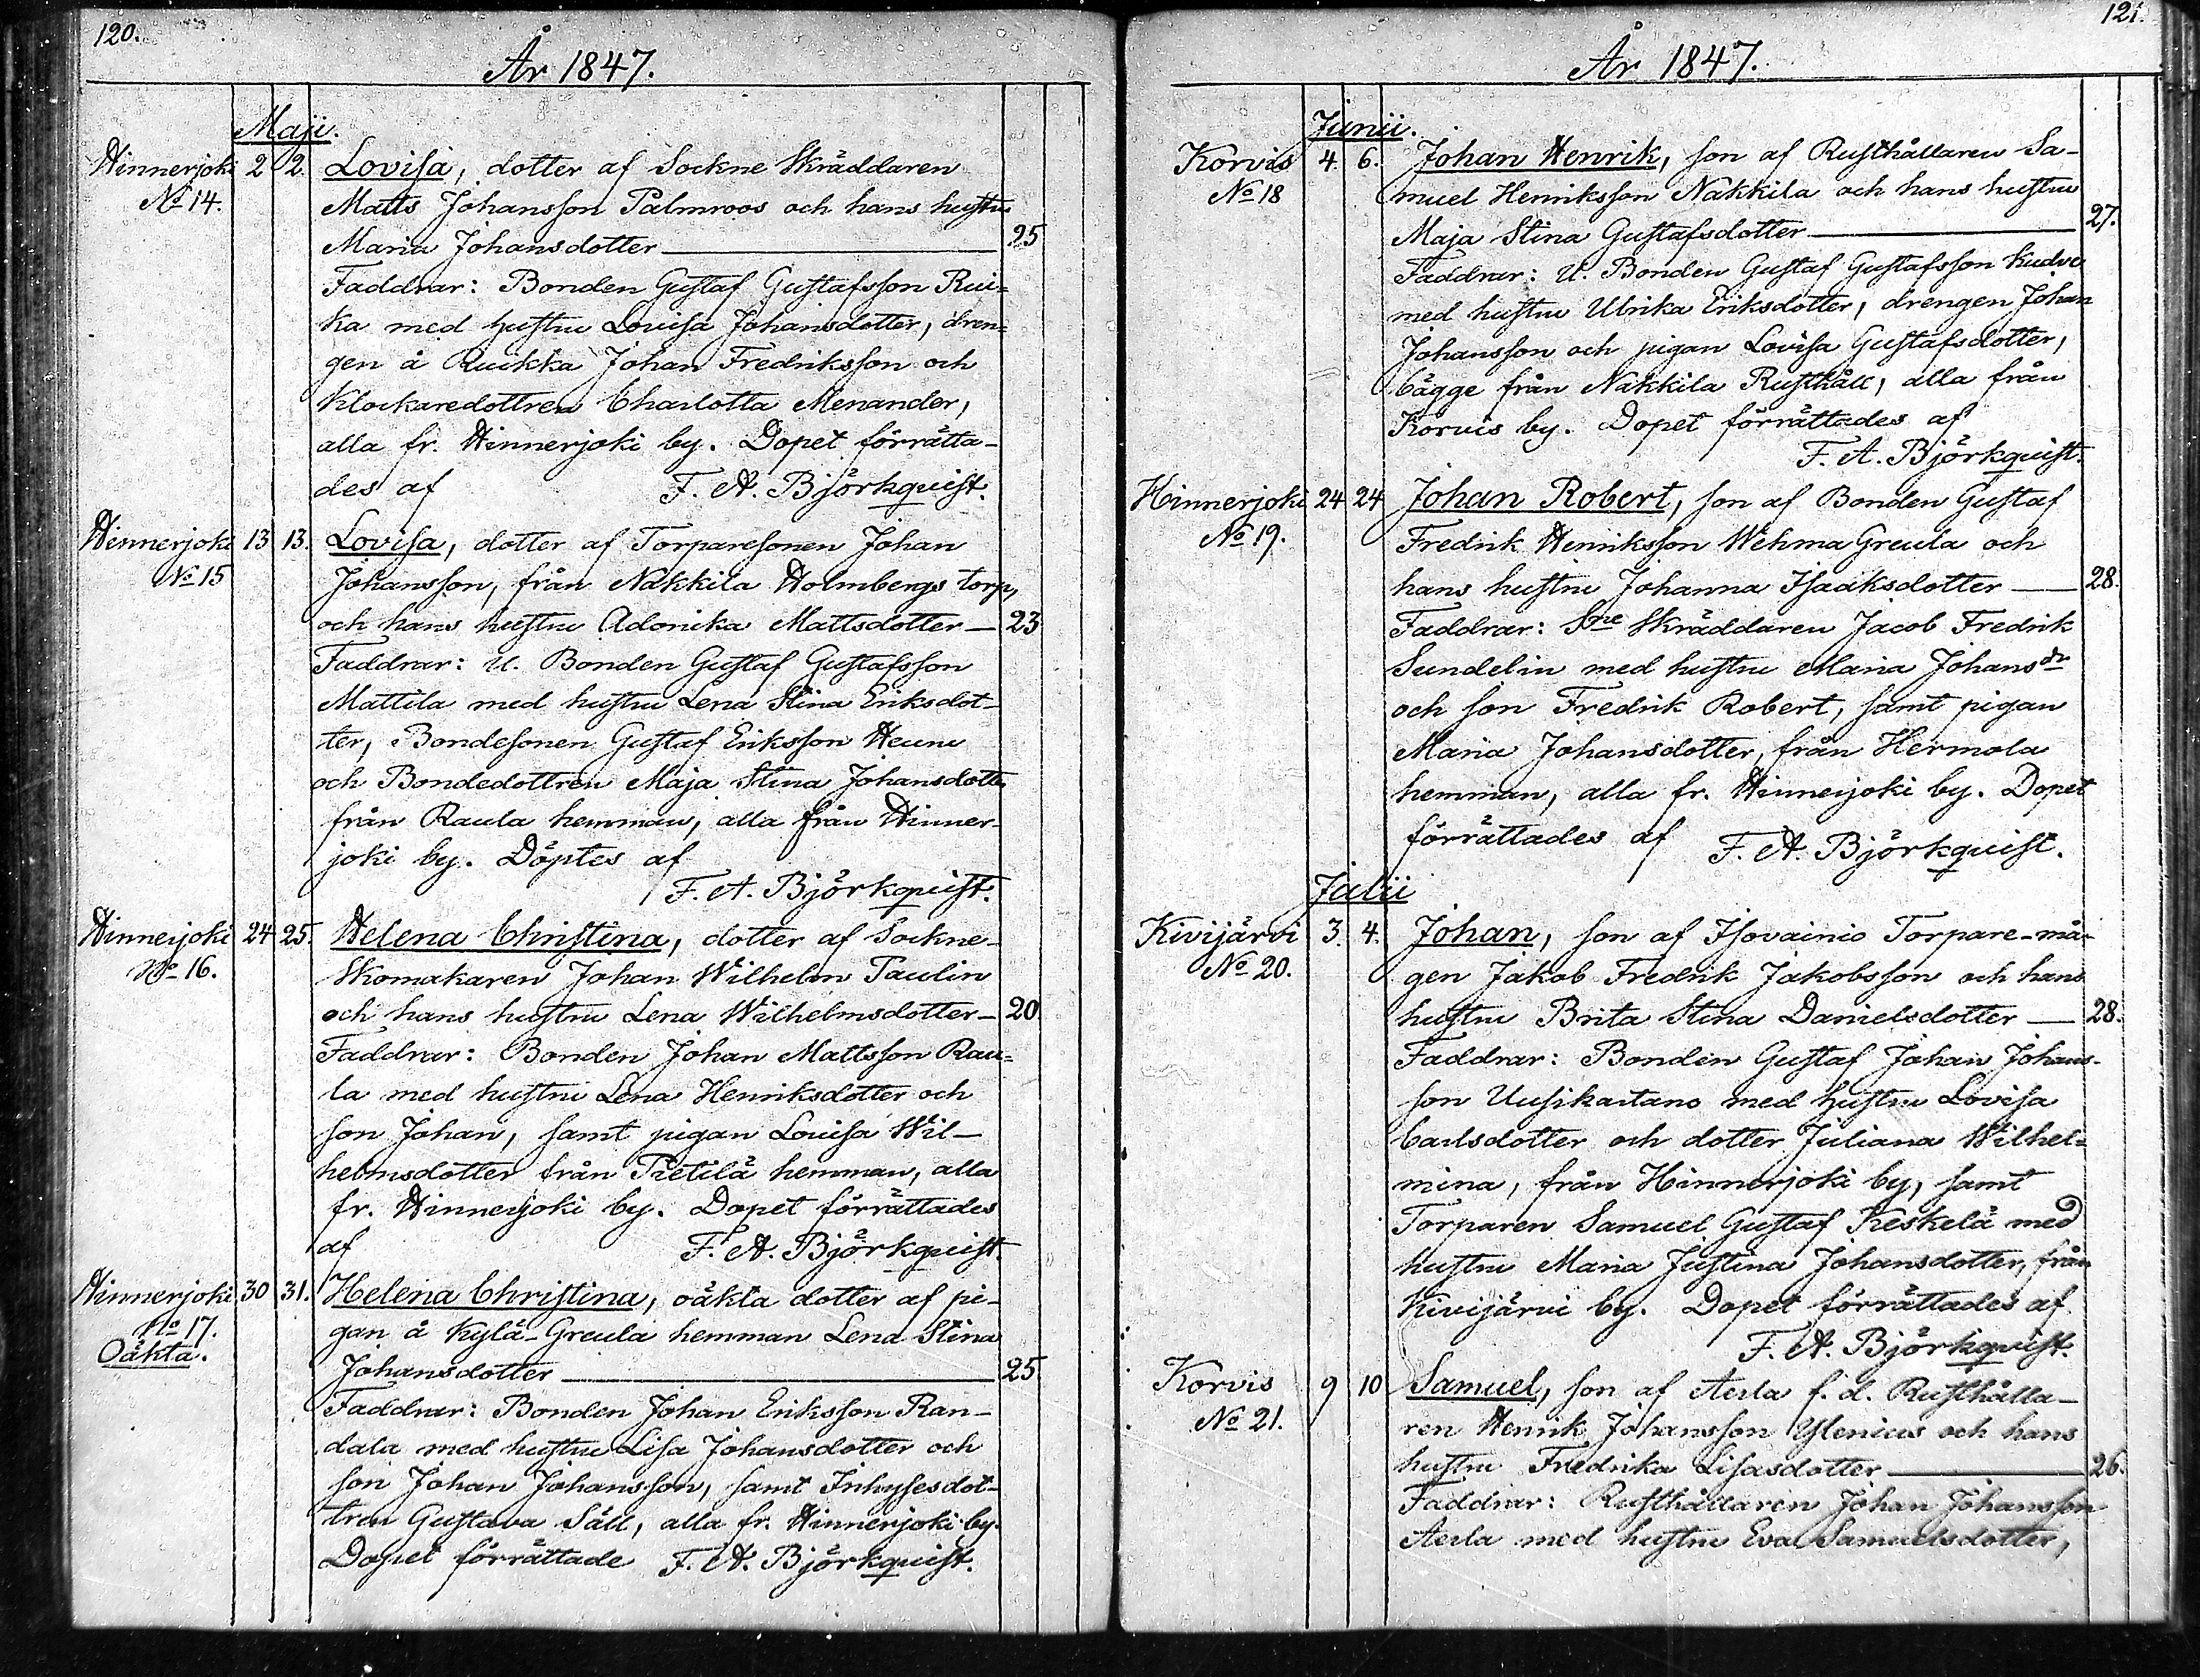 120.
År 1847.
Maji.
Hinnerjoki 2 2. Lovisa, dotter af Sockne Skräddaren
No 14. Matts Johansson Palmroos och hans hustru
Maria Johansdotter — 25
Faddrar: Bonden Gustaf Gustafsson Rui=
ka med hustru Lovisa Johansdotter, dren=
gen å Ruikka Johan Fredriksson och
Klockaredottren Charlotta Menander,
alla fr. Hinnerjoki by. Dopet förrätta-
des af F. A. Björkquist.
Hinnerjoki 13 13. Lovisa, dotter af Torparesonen Johan
No 15 Johansson, från Nakkila Holmbergs torp,
och hans hustru Adonika Mattsdotter — 23
Faddrar: U. Bonden Gustaf Gustafsson
Mattila med hustru Lena Stina Eriksdot-
ter, Bondesonen Gustaf Eriksson Heunu
och Bondedottren Maja Stina Johansdotter
från Raula hemman, alla från Hinner-
joki by. Döptes af
F. A. Björkquist.
Hinnerjoki 24 25. Helena Christina, dotter af Sockne-
No 16. Skomakaren Johan Wilhelm Paulin
och hans hustru Lena Wilhelmsdotter — 20
Faddrar: Bonden Johan Mattsson Rau=
la med hustru Lena Henriksdotter och
son Johan, samt pigan Lovisa Wil-
helmsdotter från Pietilä hemman, alla
fr. Hinnerjoki by. Dopet förrättades
af F. A. Björkquist.
Hinnerjoki 30 31. Helena Christina, oäkta dotter af pi-
No 17. gan å Kylä-Greula hemman Lena Stina
Oäkta. Johansdotter — 25
Faddrar: Bonden Johan Eriksson Ran-
dala med hustru Lisa Johansdotter och
son Johan Johansson, samt Inhysesdot-
tren Gustava Säll, alla fr. Hinnerjoki by.
Dopet förrättade F. A. Björkquist.
121.
År 1847.
Junii.
Korvis 4. 6. Johan Henrik, son af Rusthållaren Sa-
No 18 muel Henriksson Nakkila och hans hustru
Maja Stina Gustafsdotter — 27.
Faddrar: U. Bonden Gustaf Gustafsson
med hustru Ulrika Eriksdotter, drengen Johan
Johansson och pigan Lovisa Gustafsdotter,
bägge från Nakkila Rusthåll, alla från
Korvis by. Dopet förrättades af
F. A. Björkquist.
Hinnerjoki 24 24 Johan Robert, son af Bonden Gustaf
No 19. Fredrik Henriksson Wehma Greula och
hans hustru Johanna Isaaksdotter — 28.
Faddrar: Sne Skräddaren Jacob Fredrik
Sundelin med hustru Maria Johansdr
och son Fredrik Robert, samt pigan
Maria Johansdotter, från Hermola
hemman, alla fr. Hinnerjoki by. Dopet
förrättades af F. A. Björkquist.
Julii
Kivijärvi 3. 4. Johan, son af Isovainio Torpare-må-
No 20. gen Jakob Fredrik Jakobsson och hans
hustru Brita Stina Danielsdotter — 28.
Faddrar: Bonden Gustaf Johan Johans-
son Uusikartano med hustru Lovisa
Carlsdotter och dotter Juliana Wilhel=
mina, från Hinnerjoki by, samt
Torparen Samuel Gustaf Keskelä med
hustru Maria Justina Johansdotter, från
Kivijärvi by. Dopet förrättades af
F. A. Björkquist.
Korvis 9 10 Samuel, son af Aerla f. d. Rusthålla-
No 21. ren Henrik Johansson Ylenius och hans
hustru Fredrika Lisasdotter — 26.
Faddrar: Rusthållaren Johan Johansson
Aerla med hustru Eva Samuelsdotter,